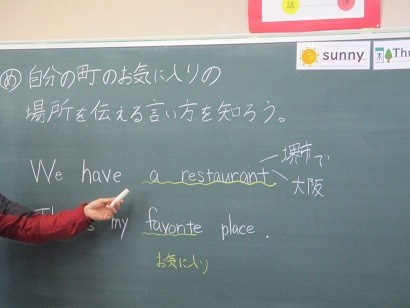 sunny
Thu
め 自分の町のお気に入りの
場所を伝える言い方を知ろう。
We have a restaurant
堺市で
大阪
my favorite place.
お気に入り